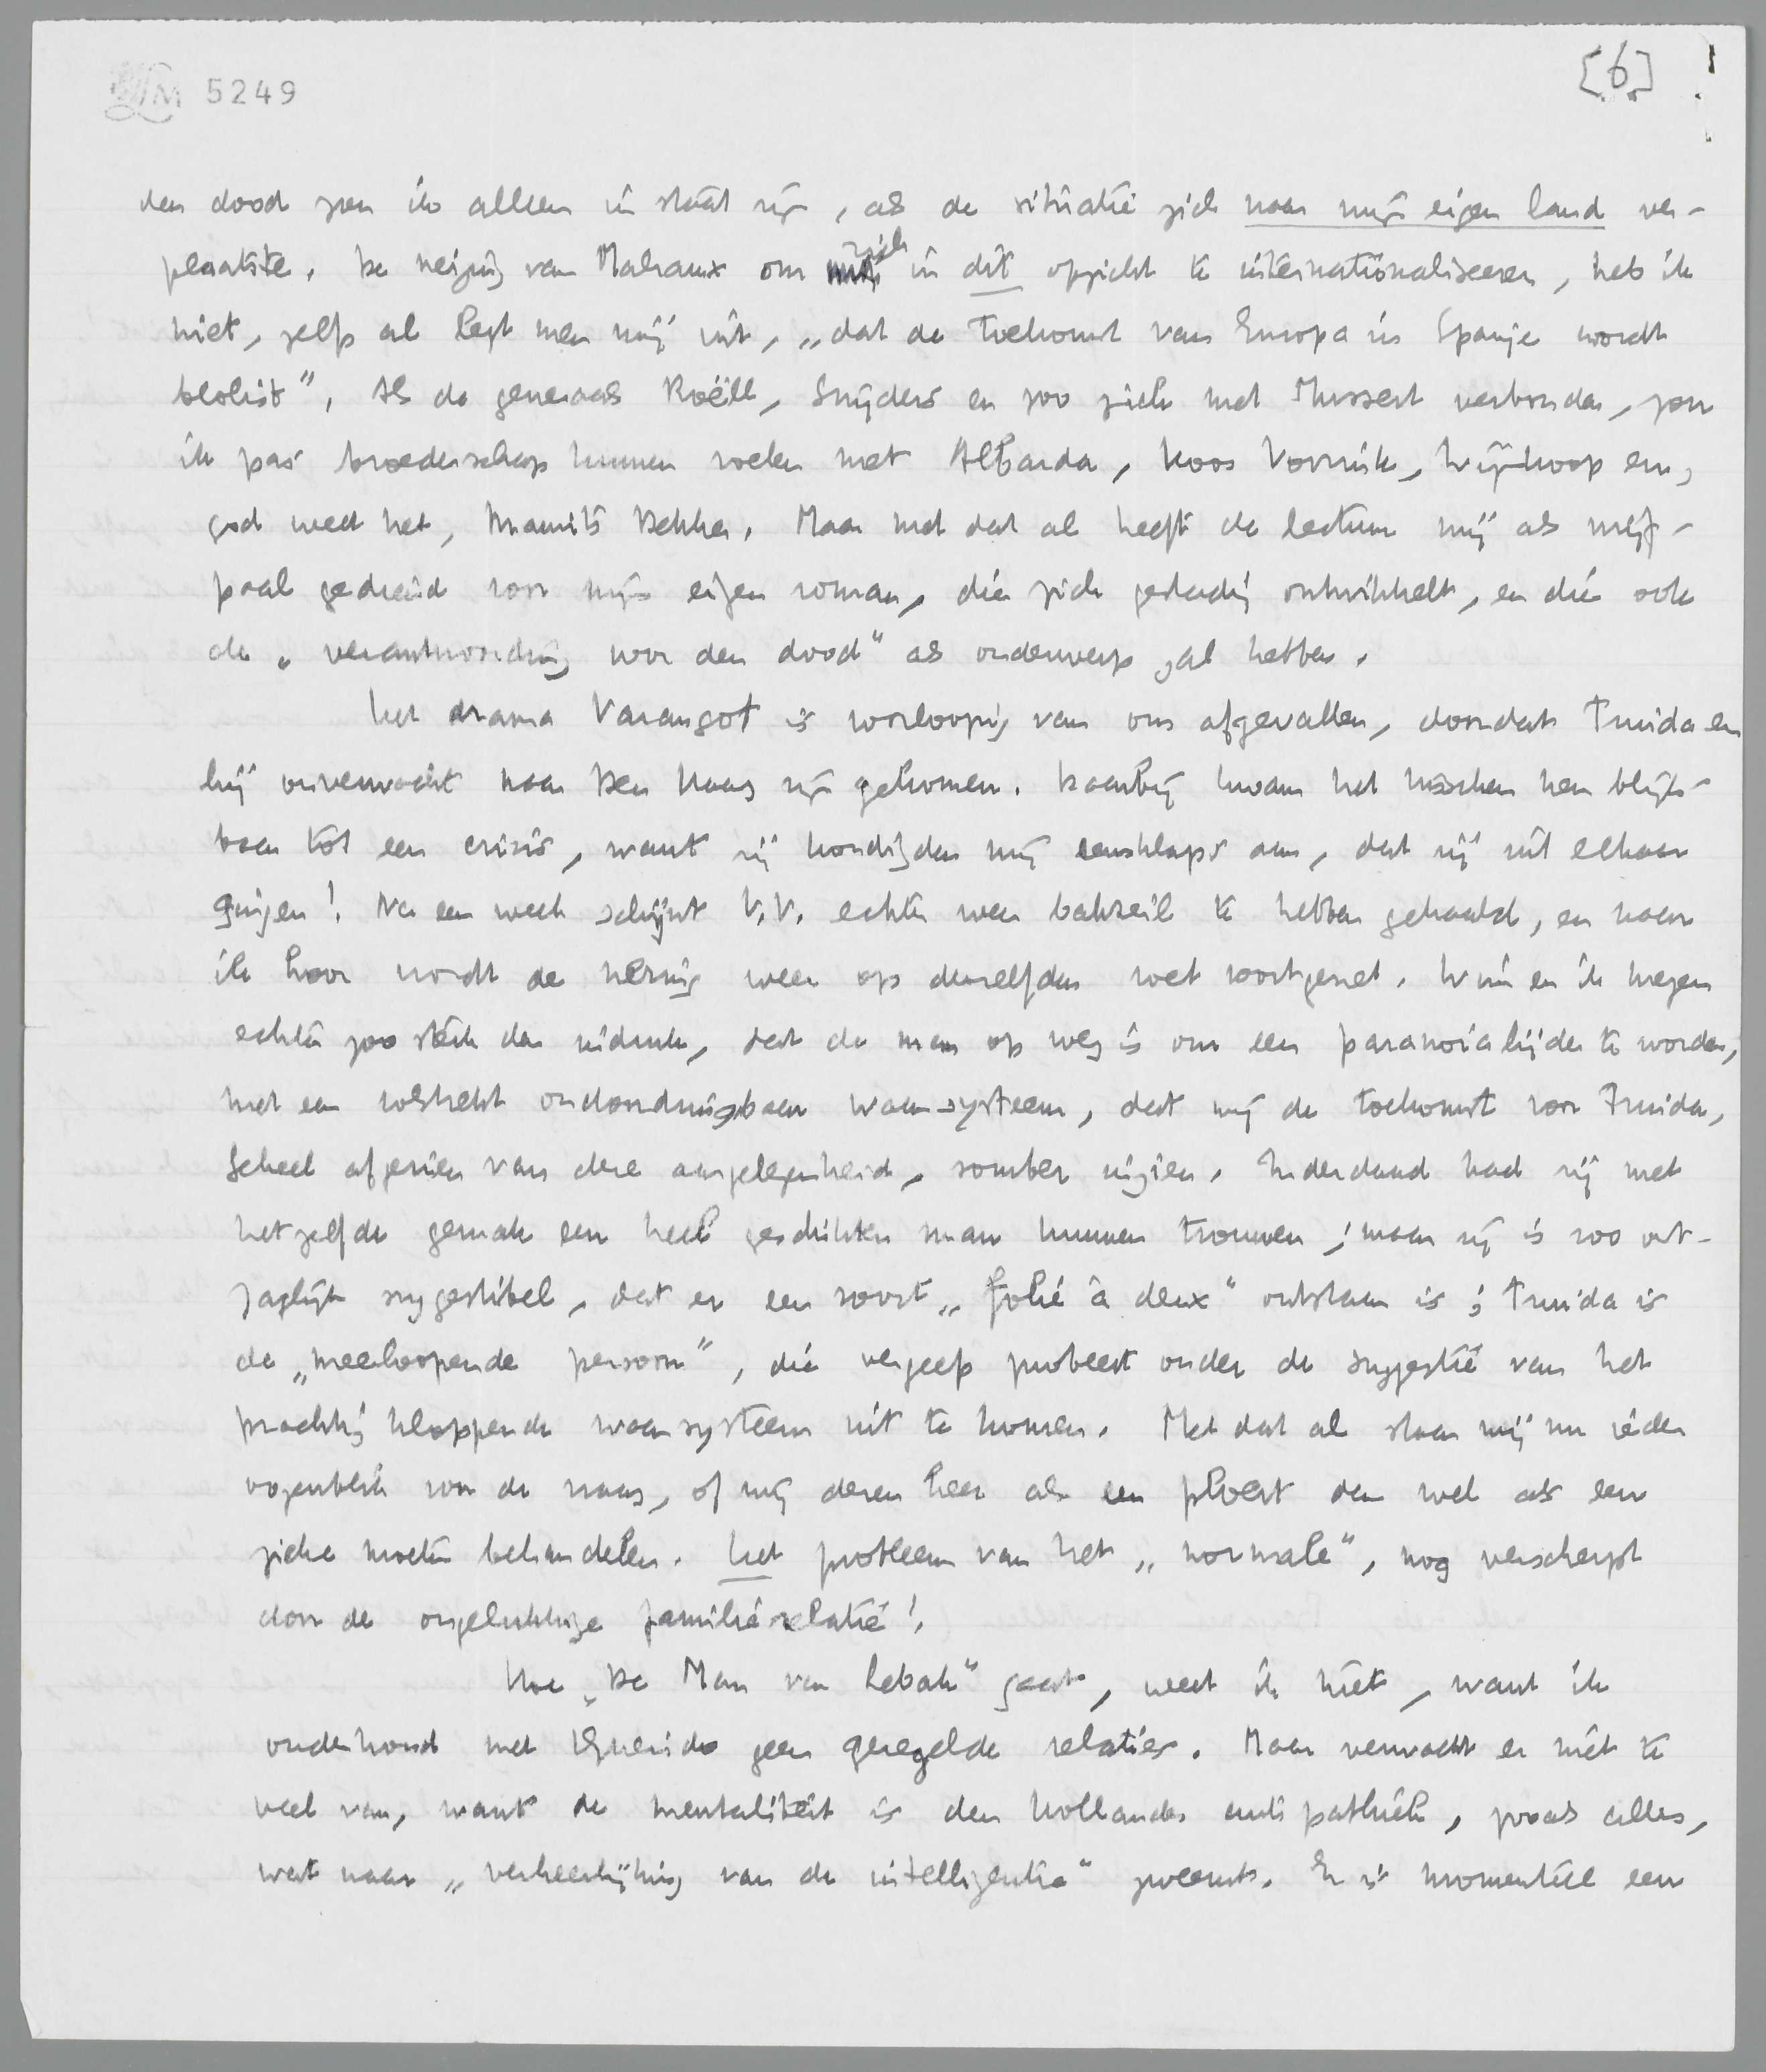 LM 5249
[6]
den dood zou ik alleen in staat zijn, als de situatie zich naar mijn eigen land ver-
plaatste. De neiging van Malraux om zich in dit opzicht te internationaliseeren, heb ik
niet, zelfs al legt men mij uit, „dat de toekomst van Europa in Spanje wordt
beslist". Als de generaals Roëll, Snijders en zoo zich met Mussert verbonden, zou
ik pas broederschap kunnen voelen met Albarda, Koos Vorrink, Wijnkoop en,
god weet het, Maurits Dekker. Maar met dat al heeft de lectuur mij als wrijf-
paal gediend voor mijn eigen roman, die zich gestadig ontwikkelt, en die ook
de „verantwoording voor den dood" als onderwerp zal hebben.
Het drama Varangot is voorloopig van ons afgevallen, doordat Truida en
hij onverwacht naar Den Haag zijn gekomen. Daarbij kwam het tusschen hen blijk-
baar tot een crisis, want zij kondigden mij eensklaps aan, dat zij uit elkaar
gingen! Na een week schijnt V.V. echter weer bakzeil te hebben gehaald, en naar
ik hoor wordt de nering weer op denzelfden voet voortgezet. Wim en ik kregen
echter zoo sterk den indruk, dat de man op weg is om een paranoialijder te worden,
met een volstrekt ondoordringbaar waansysteem, dat wij de toekomst voor Truida,
geheel afgezien van deze aangelegenheid, somber inzien. Inderdaad had zij met
hetzelfde gemak een heel geschikten man kunnen trouwen; maar zij is zoo ont-
zaglijk suggestibel, dat er een soort „folie à deux" ontstaan is; Truida is
de „meeloopende persoon", die vergeefs probeert onder de suggestie van het
prachtig kloppende waansysteem uit te komen. Met dat al staan wij nu ieder
oogenblik voor de vraag, of wij dezen heer als een ploert dan wel als een
zieke moeten behandelen. Het probleem van het „normale", nog verscherpt
door de ongelukkige familierelatie!
Hoe „De Man van Lebak" gaat, weet ik niet, want ik
onderhoud met Querido geen geregelde relaties. Maar verwacht er niet te
veel van, want de mentaliteit is den Hollander antipathiek, zooals alles,
wat naar „verheerlijking van de intelligentie" zweemt. Er is momenteel een